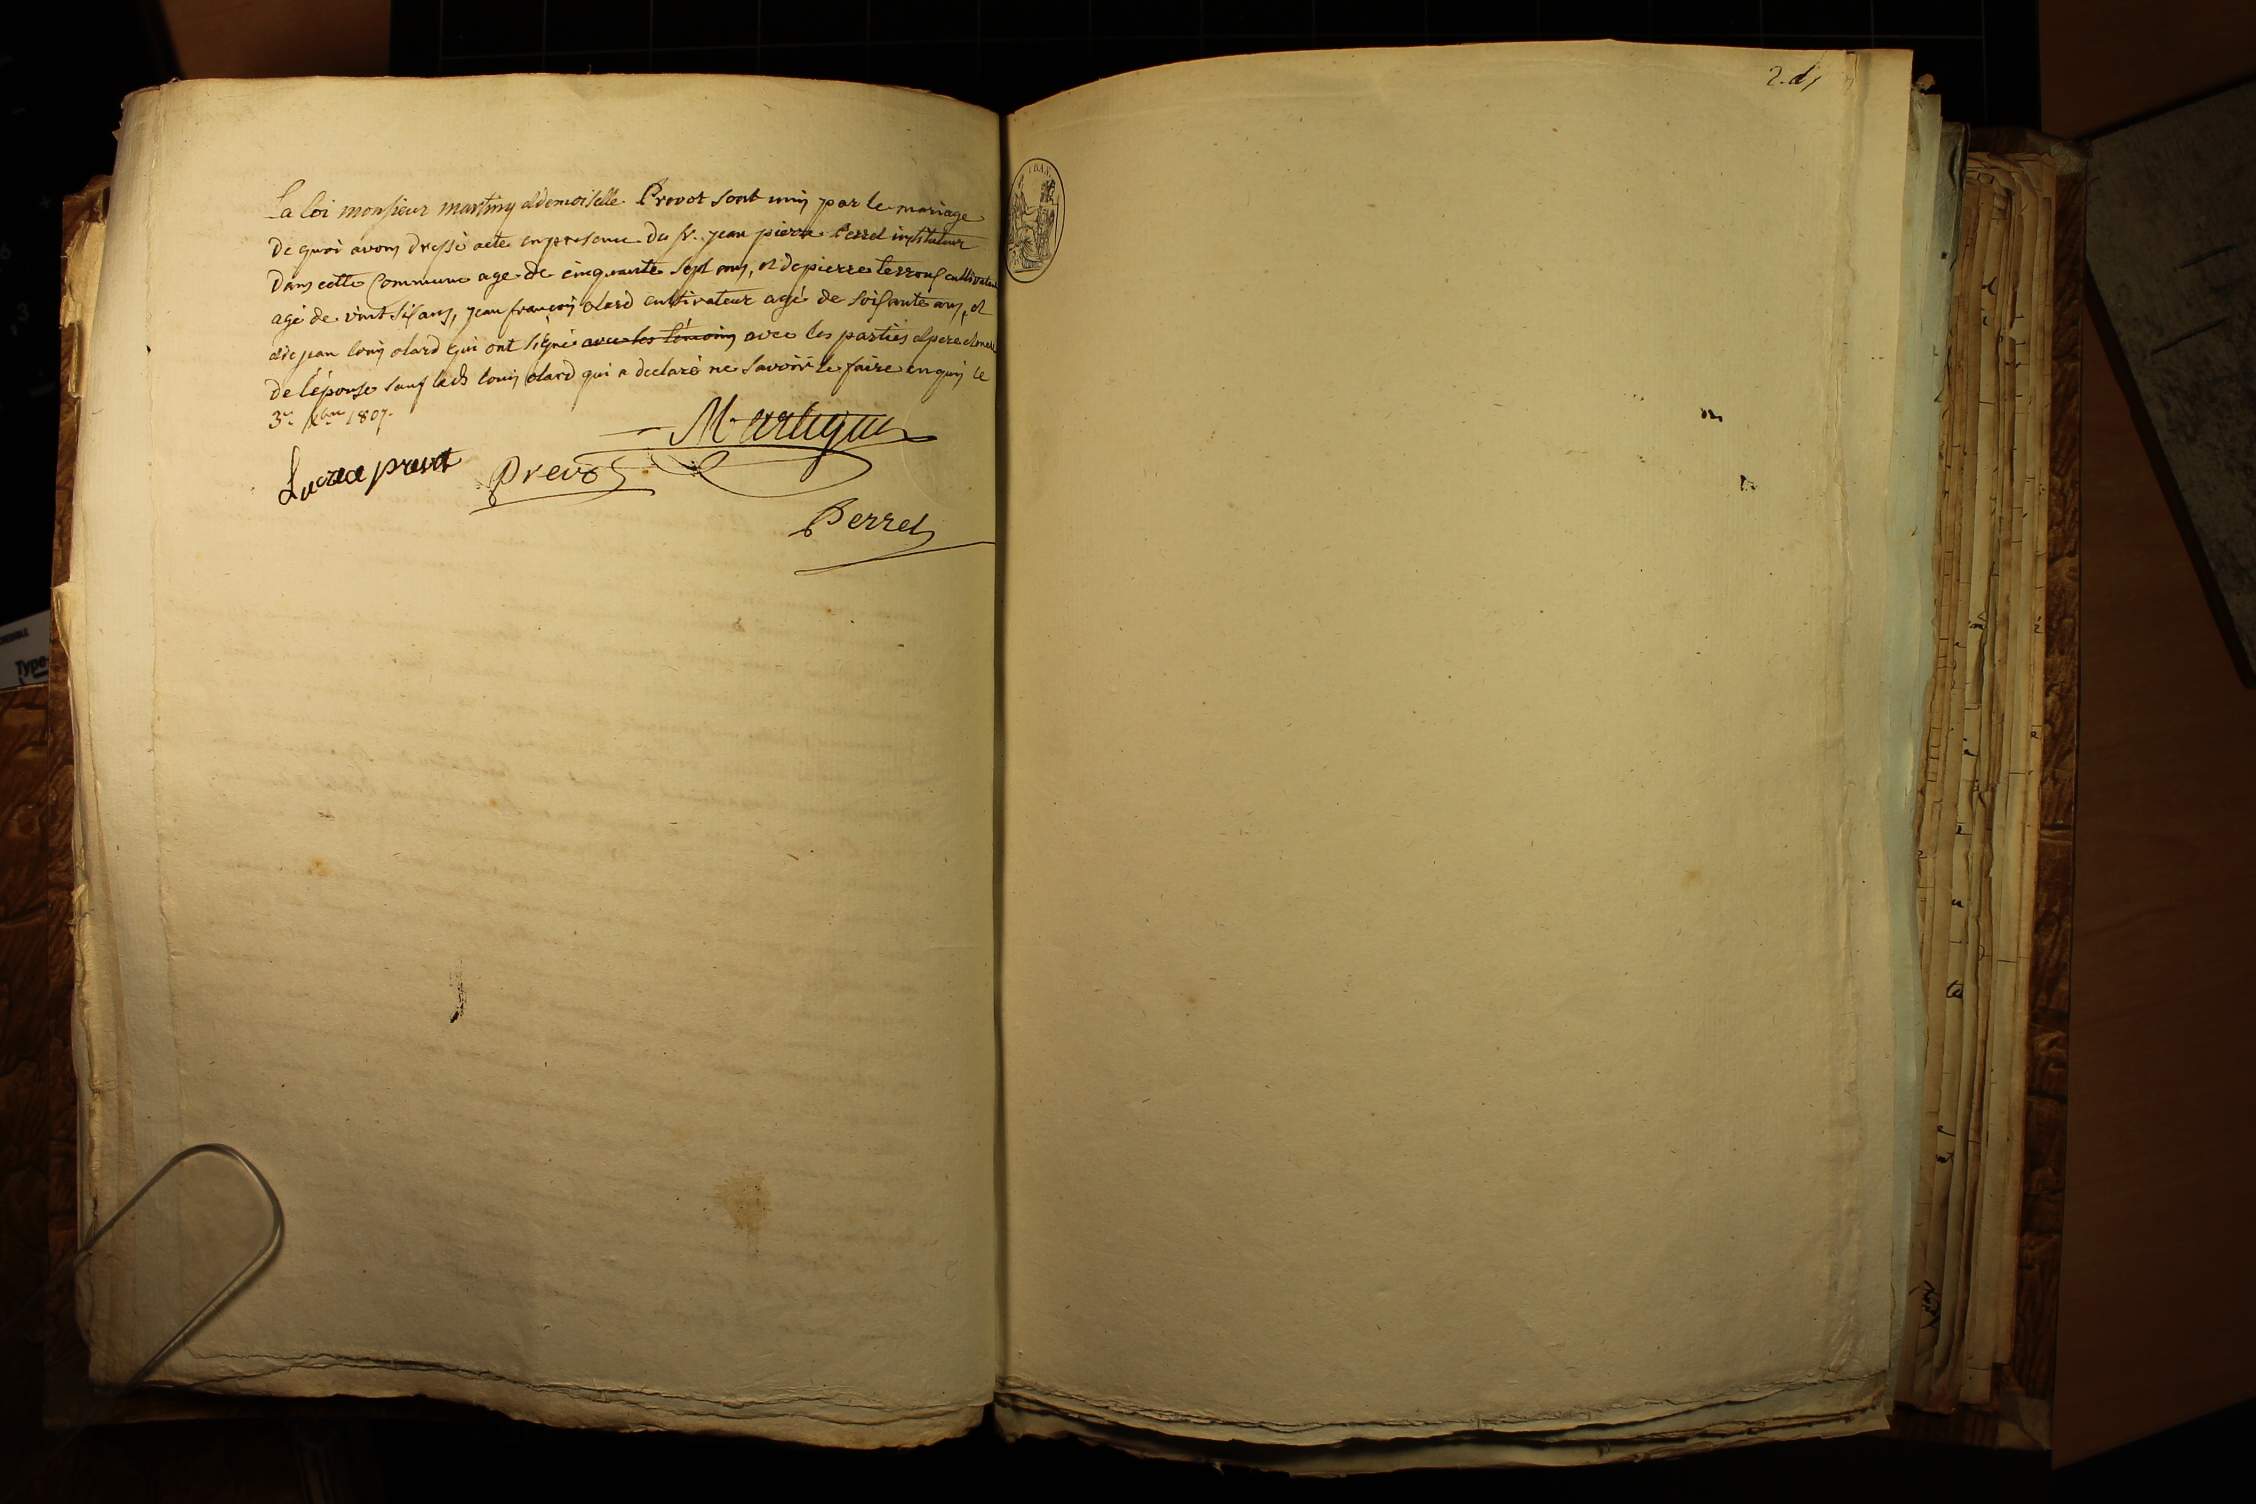 La loi monsieur martiny & demoiselle Prevot sont unis par le mariage
De quoi avons dressé acte en presence du sr. jean pierre Perrel instituteur
Dans cette Commune age de cinquante sept ans, et de pierre terrous cultivateur
agé de vint six ans, jean françois olard cultivateur agé de soisante ans, et
de jean louis olard qui ont signé avec les témoins avec les parties
De l'épouse sauf led louis olard qui a declaré ne savoir le faire le
3e. 1807.
Prevot
Perrel
2. d